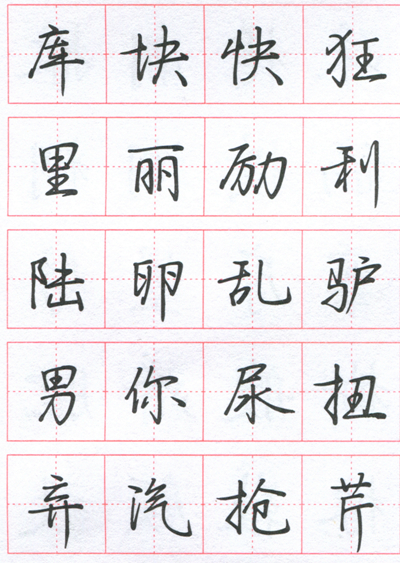 库块快狂
里丽励利
陆卵乱驴
男你尿扭
弃汽抢芹